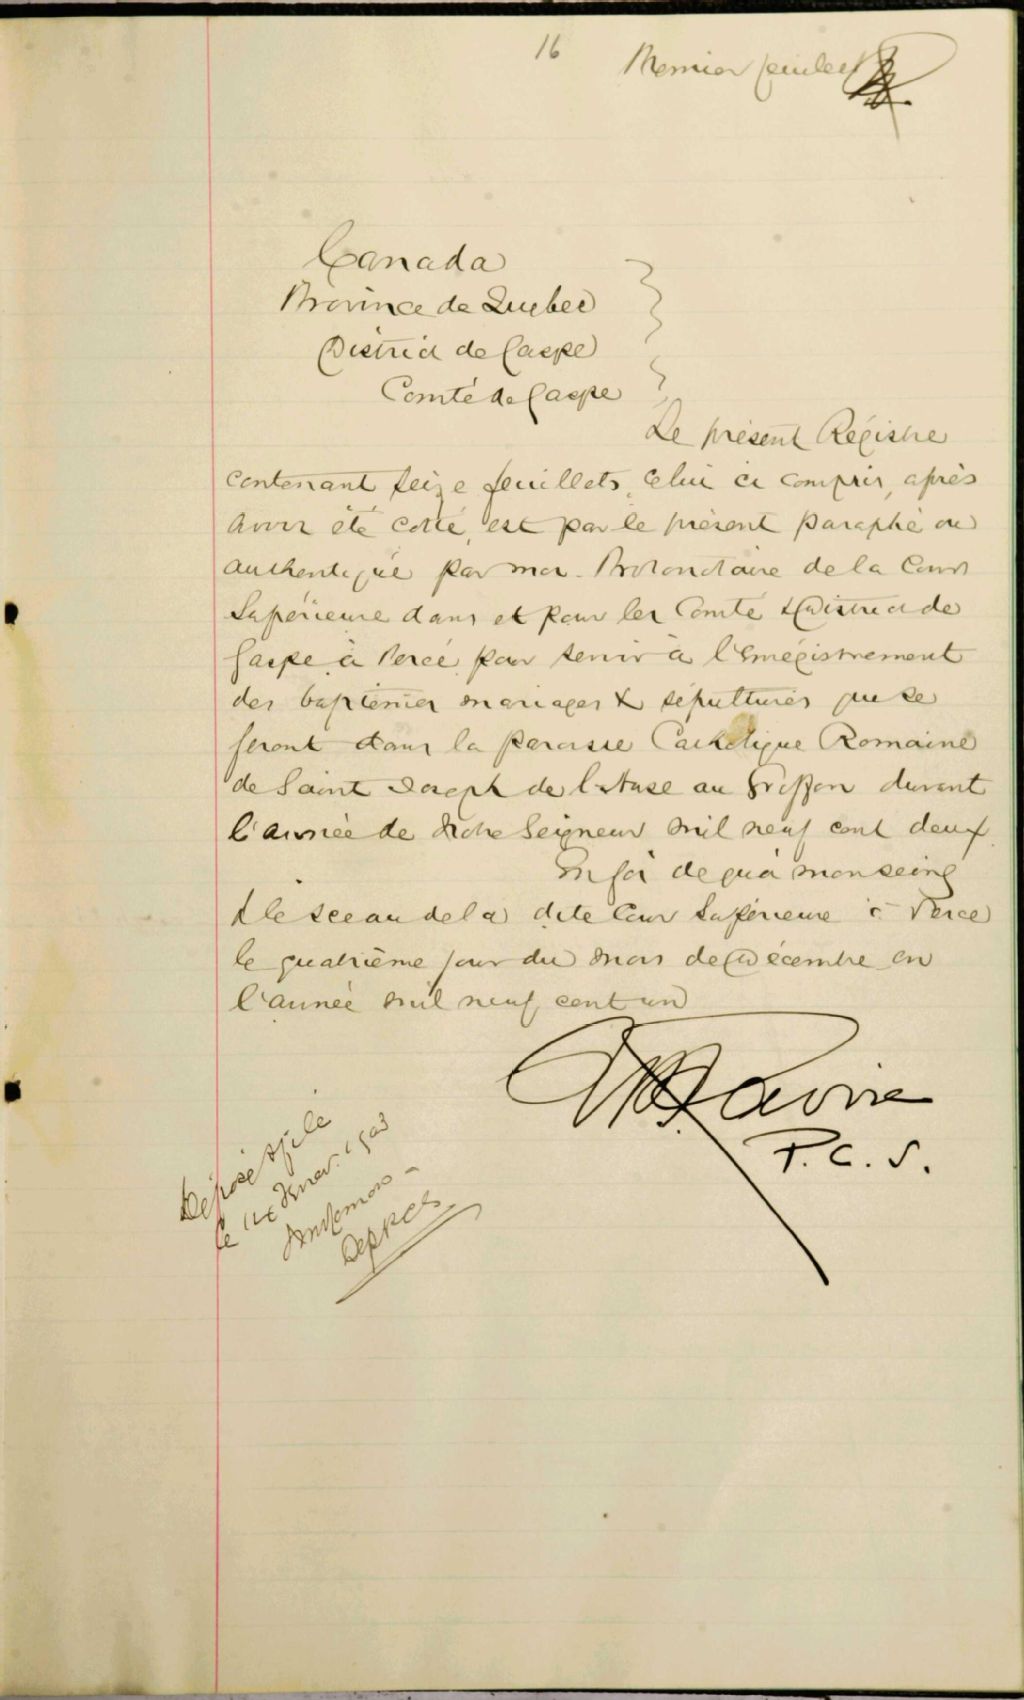 16
Premier feuillet
Canada
Province de Quebec
District de Gaspe
Comté de Gaspe
Le présent Régistre
contenant seize feuillets, celui ci compris, après
avoir été cotté, est par le présent paraphé ou
authentiqué par moi Protonotaire de la Cour
Supérieure dans et pour les Comté & District de
Gaspe à Percé, pour servir à l'Enrégistrement
des baptêmes mariages & sépultures qui se
feront dans la paroisse Catholique Romaine
de Saint Joseph de l'Anse au Griffon durant
l'année de Notre Seigneur mil neuf cent deux.
En foi de quoi mon seing
& le sceau de la dite Cour Supérieure à Percé
le quatrième jour du mois de Décembre en
l'année mil neuf cent un
Lavoie
P.C.S.
Déposé & filé
le 14 Janv. 1903